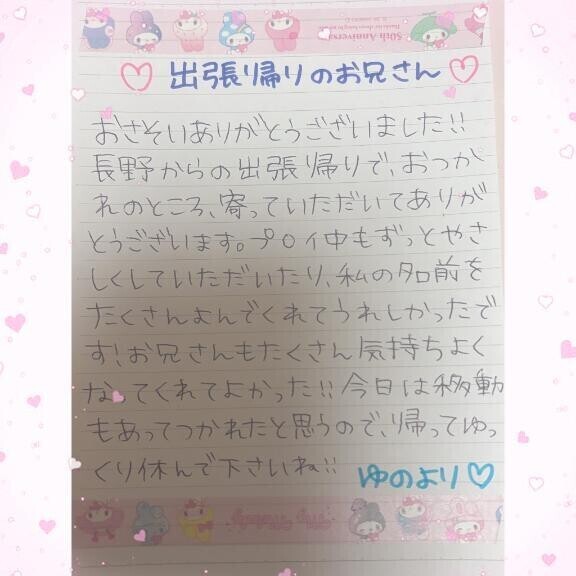 50th Anniversary
♡ 出張帰りのお兄さん ♡
おさそいありがとうございました!!
長野からの出張帰りで、おつか
れのところ、寄っていただいてありが
とうございます。プロイ中もずっとやさ
しくしていただいたり、私の名前を
たくさんよんでくれてうれしかったで
す!お兄さんもたくさん気持ちよく
なってくれてよかった!!今日は移動
もあってつかれたと思うので、帰ってゆっ
くり休んで下さいね!!
ゆのより♡
My Melody